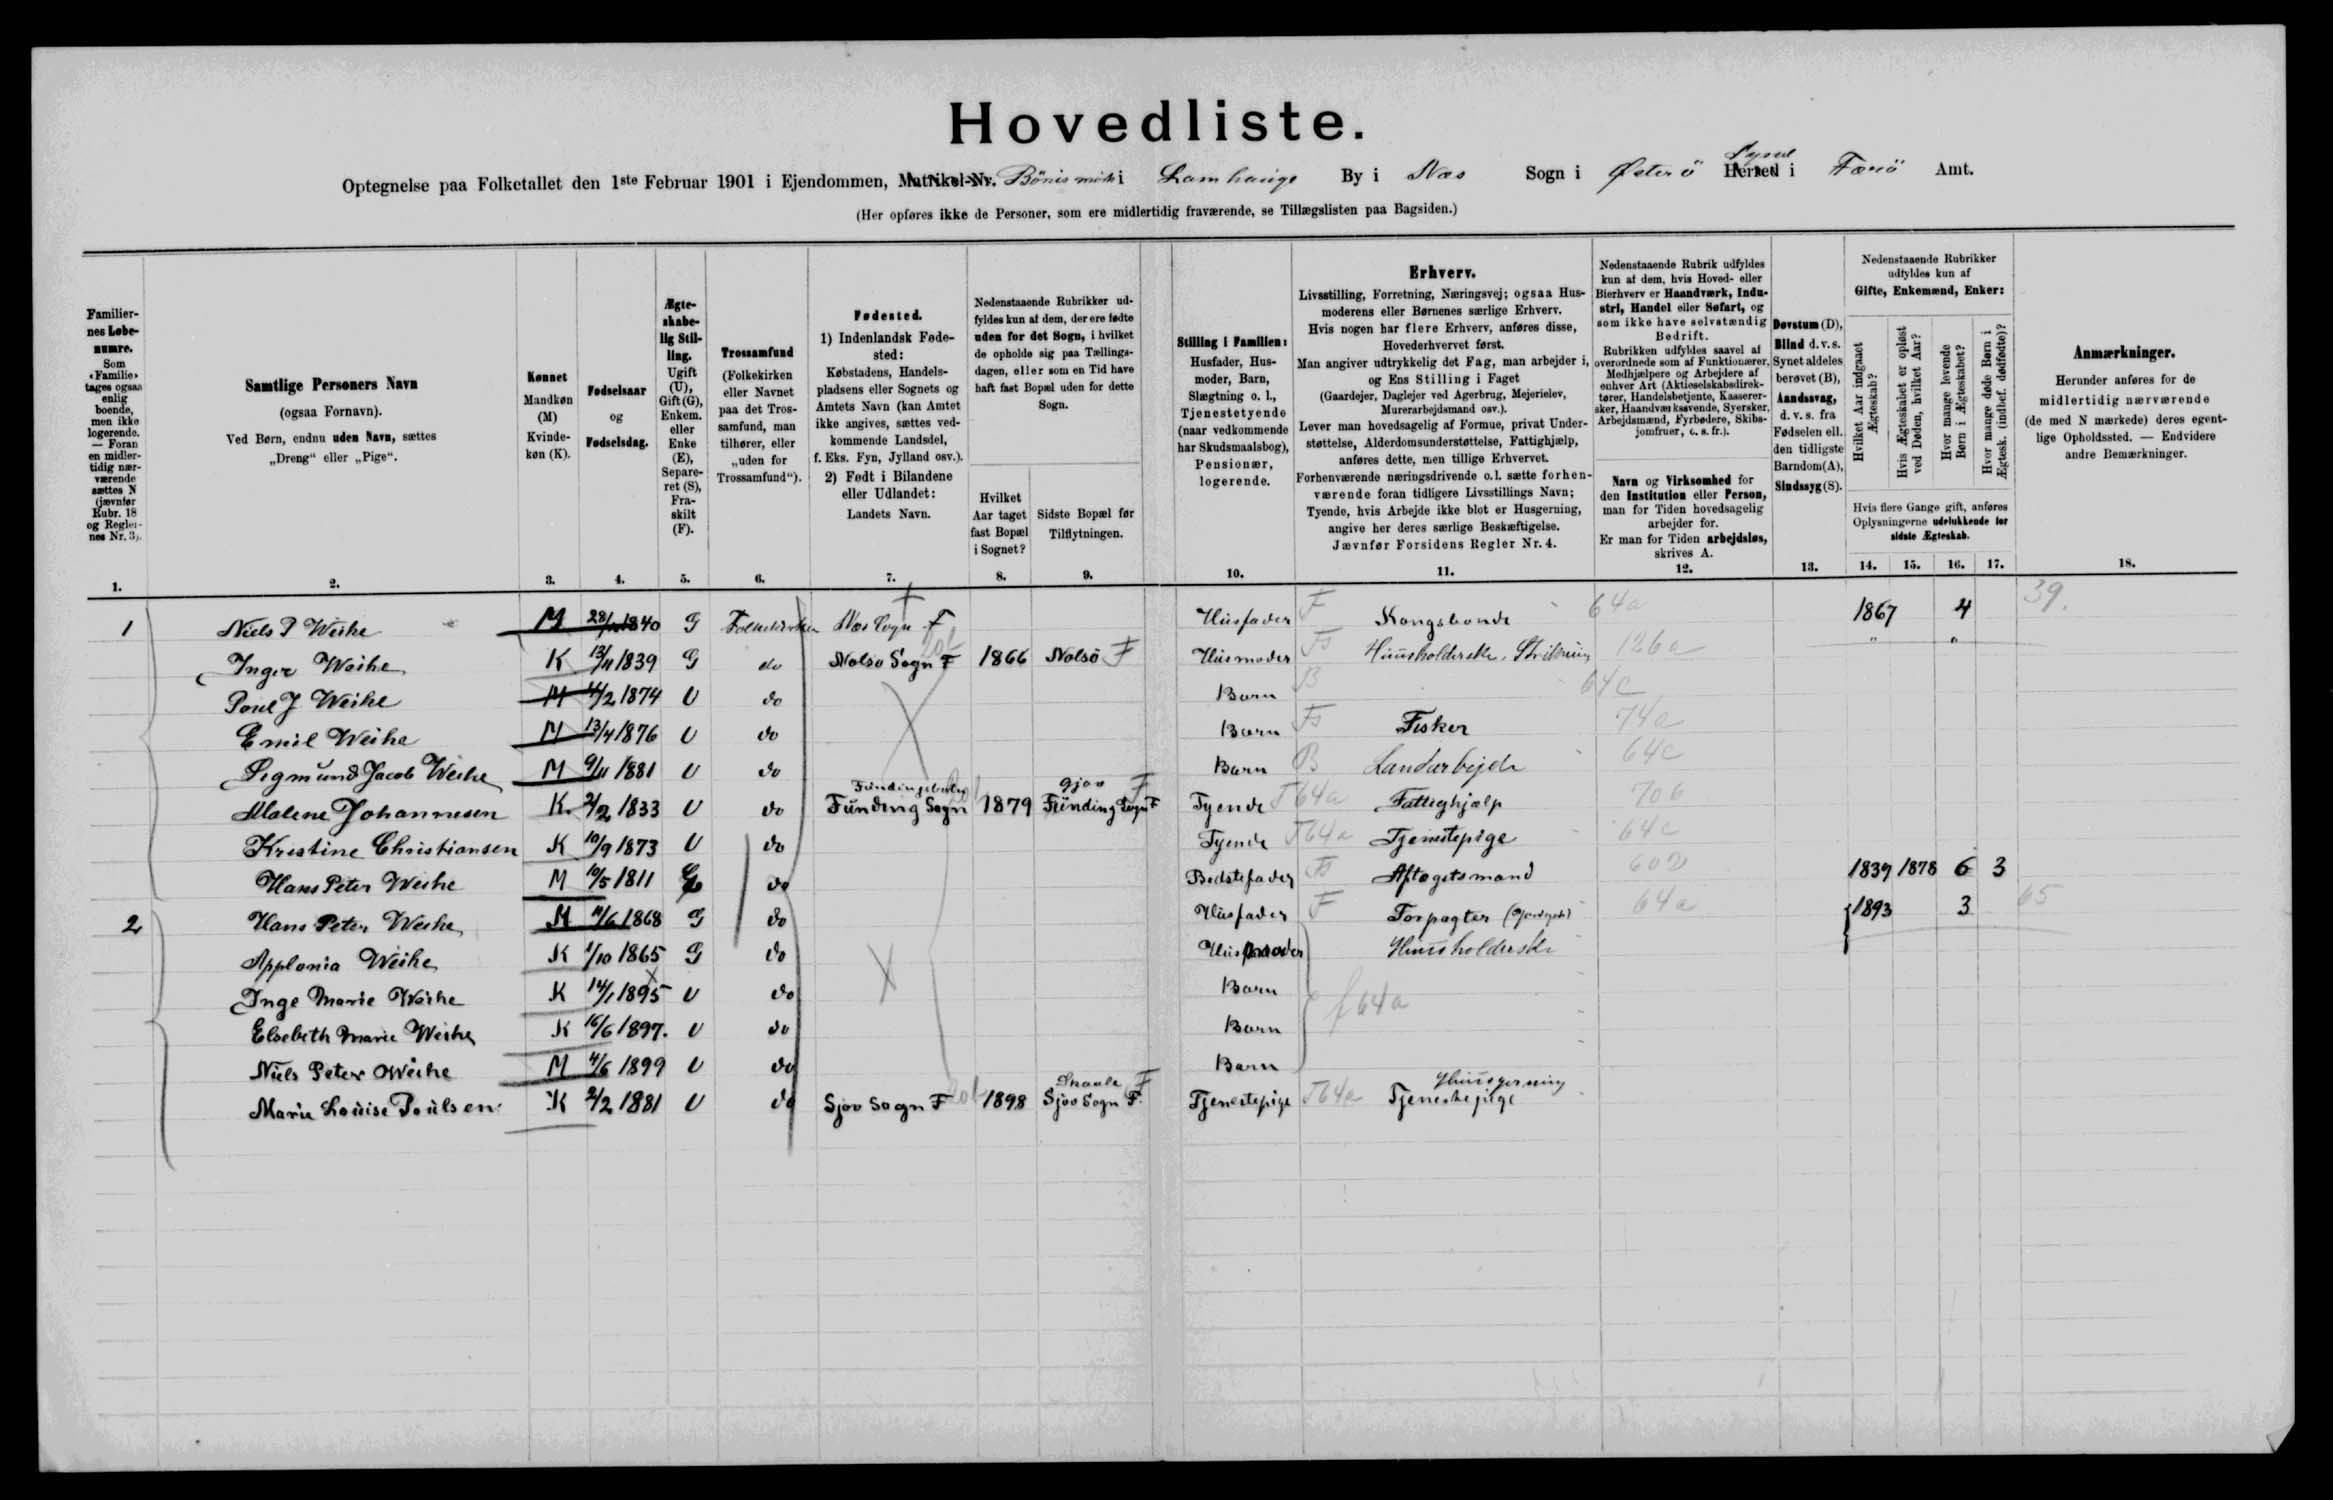 Hovedliste.
Optegnelse paa Folketallet den 1ste Februar 1901 i Ejendommen, Matrikel-Nr. i Lamhauge By i Næs Sogn i Østerö Herred Syssel i Færö Amt.
(Her opføres ikke de Personer, som ere midlertidig fraværende, se Tillægslisten paa Bagsiden.)
Familier-
nes Løbe-
numre.
Som
«Familie»
tages ogsaa
enlig
boende,
men ikke
logerende.
— Foran
en midler-
tidig nær-
værende
sættes N
(jævnfør
Rubr. 18
og Regler-
nes Nr. 3).
1.
Samtlige Personers Navn
(ogsaa Fornavn).
Ved Børn, endnu uden Navn, sættes
„Dreng“ eller „Pige“.
2.
Kønnet
Mandkøn
(M)
Kvinde-
køn (K).
3.
Fødselsaar
og
Fødselsdag.
4.
Ægte-
skabe-
lig Stil-
ling.
Ugift
(U),
Gift (G),
Enkem.
eller
Enke
(E),
Separe-
ret (S),
Fra-
skilt
(F).
5.
Trossamfund
(Folkekirken
eller Navnet
paa det Tros-
samfund, man
tilhører, eller
„uden for
Trossamfund“).
6.
Fødested.
1) Indenlandsk Føde-
sted:
Købstadens, Handels-
pladsens eller Sognets og
Amtets Navn (kan Amtet
ikke angives, sættes ved-
kommende Landsdel,
f. Eks. Fyn, Jylland osv.).
2) Født i Bilandene
eller Udlandet:
Landets Navn.
7.
Nedenstaaende Rubrikker ud-
fyldes kun af dem, der ere fødte
uden for det Sogn, i hvilket
de opholde sig paa Tællings-
dagen, eller som en Tid have
haft fast Bopæl uden for dette
Sogn.
Hvilket
Aar taget
fast Bopæl
i Sognet?
8.
Sidste Bopæl før
Tilflytningen.
9.
Stilling i Familien:
Husfader, Hus-
moder, Barn,
Slægtning o. l.,
Tjenestetyende
(naar vedkommende
har Skudsmaalsbog),
Pensionær,
logerende.
10.
Erhverv.
Livsstilling, Forretning, Næringsvej; ogsaa Hus-
moderens eller Børnenes særlige Erhverv.
Hvis nogen har flere Erhverv, anføres disse,
Hovederhvervet først.
Man angiver udtrykkelig det Fag, man arbejder i,
og Ens Stilling i Faget
(Gaardejer, Daglejer ved Agerbrug, Mejerielev,
Murerarbejdsmand osv.).
Lever man hovedsagelig af Formue, privat Under-
støttelse, Alderdomsunderstøttelse, Fattighjælp,
anføres dette, men tillige Erhvervet.
Forhenværende næringsdrivende o. l. sætte forhen-
værende foran tidligere Livsstillings Navn;
Tyende, hvis Arbejde ikke blot er Husgerning,
angive her deres særlige Beskæftigelse.
Jævnfør Forsidens Regler Nr. 4.
11.
Nedenstaaende Rubrik udfyldes
kun af dem, hvis Hoved- eller
Bierhverv er Haandværk, Indu-
stri, Handel eller Søfart, og
som ikke have selvstændig
Bedrift.
Rubrikken udfyldes saavel af
overordnede som af Funktionærer,
Medhjælpere og Arbejdere af
enhver Art (Aktieselskabsdirek-
tører, Handelsbetjente, Kasserer-
sker, Haandværkssvende, Syersker,
Arbejdsmænd, Fyrbødere, Skibs-
jomfruer, o. s. fr.).
Navn og Virksomhed for
den Institution eller Person,
man for Tiden hovedsagelig
arbejder for.
Er man for Tiden arbejdsløs,
skrives A.
12.
Døvstum (D),
Blind d. v. s.
Synet aldeles
berøvet (B),
Aandssvag,
d. v. s. fra
Fødselen ell.
den tidligste
Barndom (A),
Sindssyg (S).
13.
Nedenstaaende Rubrikker
udfyldes kun af
Gifte, Enkemænd, Enker:
Hvilket Aar indgaaet
Ægteskab?
Hvis Ægteskabet er opløst
ved Døden, hvilket Aar?
Hvor mange levende
Børn i Ægteskabet?
Hvor mange døde Børn i
Ægtesk. (indbef. dødfødte)?
Hvis flere Gange gift, anføres
Oplysningerne udelukkende for
sidste Ægteskab.
14. 15. 16. 17.
Anmærkninger.
Herunder anføres for de
midlertidig nærværende
(de med N mærkede) deres egent-
lige Opholdssted. — Endvidere
andre Bemærkninger.
18.
1 Niels P Weihe M 1840 G Folkekirken Næs Sogn F Husfader F Kongsbonde 64a 1867 4 39.
Inger Weihe K 13/11 1839 G do Nolsø Sogn F 1866 Nolsö F Husmoder Fs Huusholderske, Strikning 126a " "
Poul J Weihe M 1874 U do Barn B 64c
Emil Weihe M 13/4 1876 U do Barn Fs Fisker 74a
Sigmund Jacob Weihe M 9/11 1881 U do Barn B Landarbejde 64c
Malene Johannesen K 2/2 1833 U do Funding Sogn 1879 Gjov Funding Sogn F Tyende T64a Fattighjælp 706
Kristine Christiansen K 10/9 1873 U do Tyende T64a Tjenestepige 64c
Hans Peter Weihe M 10/5 1811 E do Bedstefader Fs Aftægtsmand 1839 1878 6 3
2 Hans Peter Weihe M 11/6 1868 G do Husfader F Forpagter 64a 1893 3 65
Applonia Weihe K 1/10 1865 G do Husmoder Huusholderske
Inge Marie Weihe K 14/1 1895 U do Barn f 64a
Elsebeth Marie Weihe K 16/6 1897. U do Barn
Niels Peter Weihe M 4/6 1899 U do Barn
Marie Louise Poulsen K 2/2 1881 U do Sjov Sogn F 1898 Skaale Sjov Sogn F. Tjenestepige T64a Huusgerning Tjenestepige